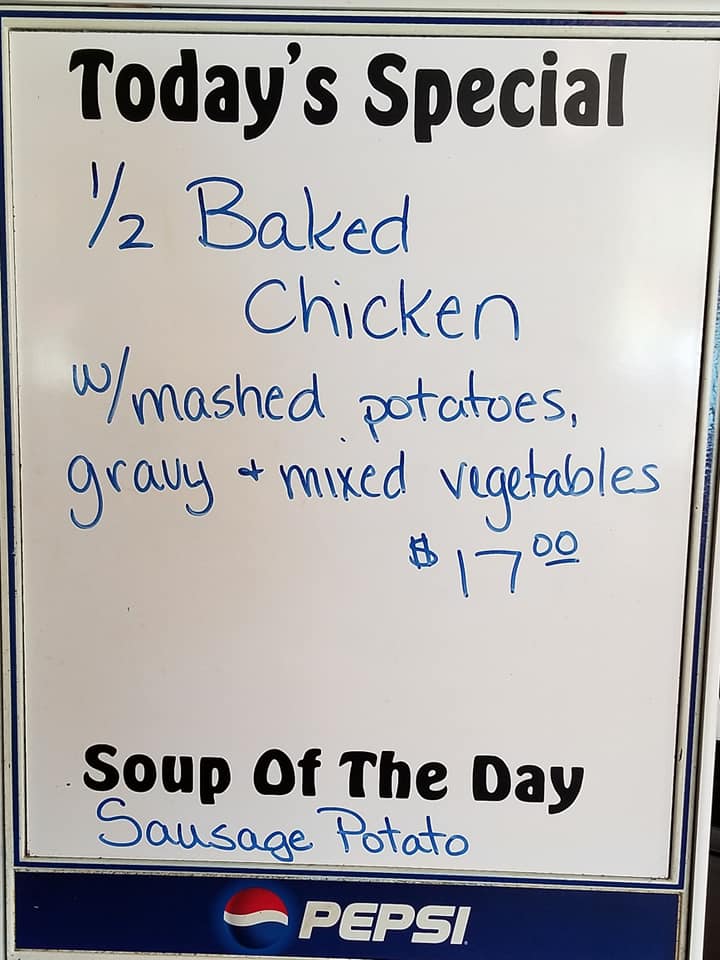 Today's Special
1/2 Baked
Chicken
w/mashed potatoes,
gravy + mixed vegetables
$17.00
Soup Of The Day
Sausage Potato
PEPSI